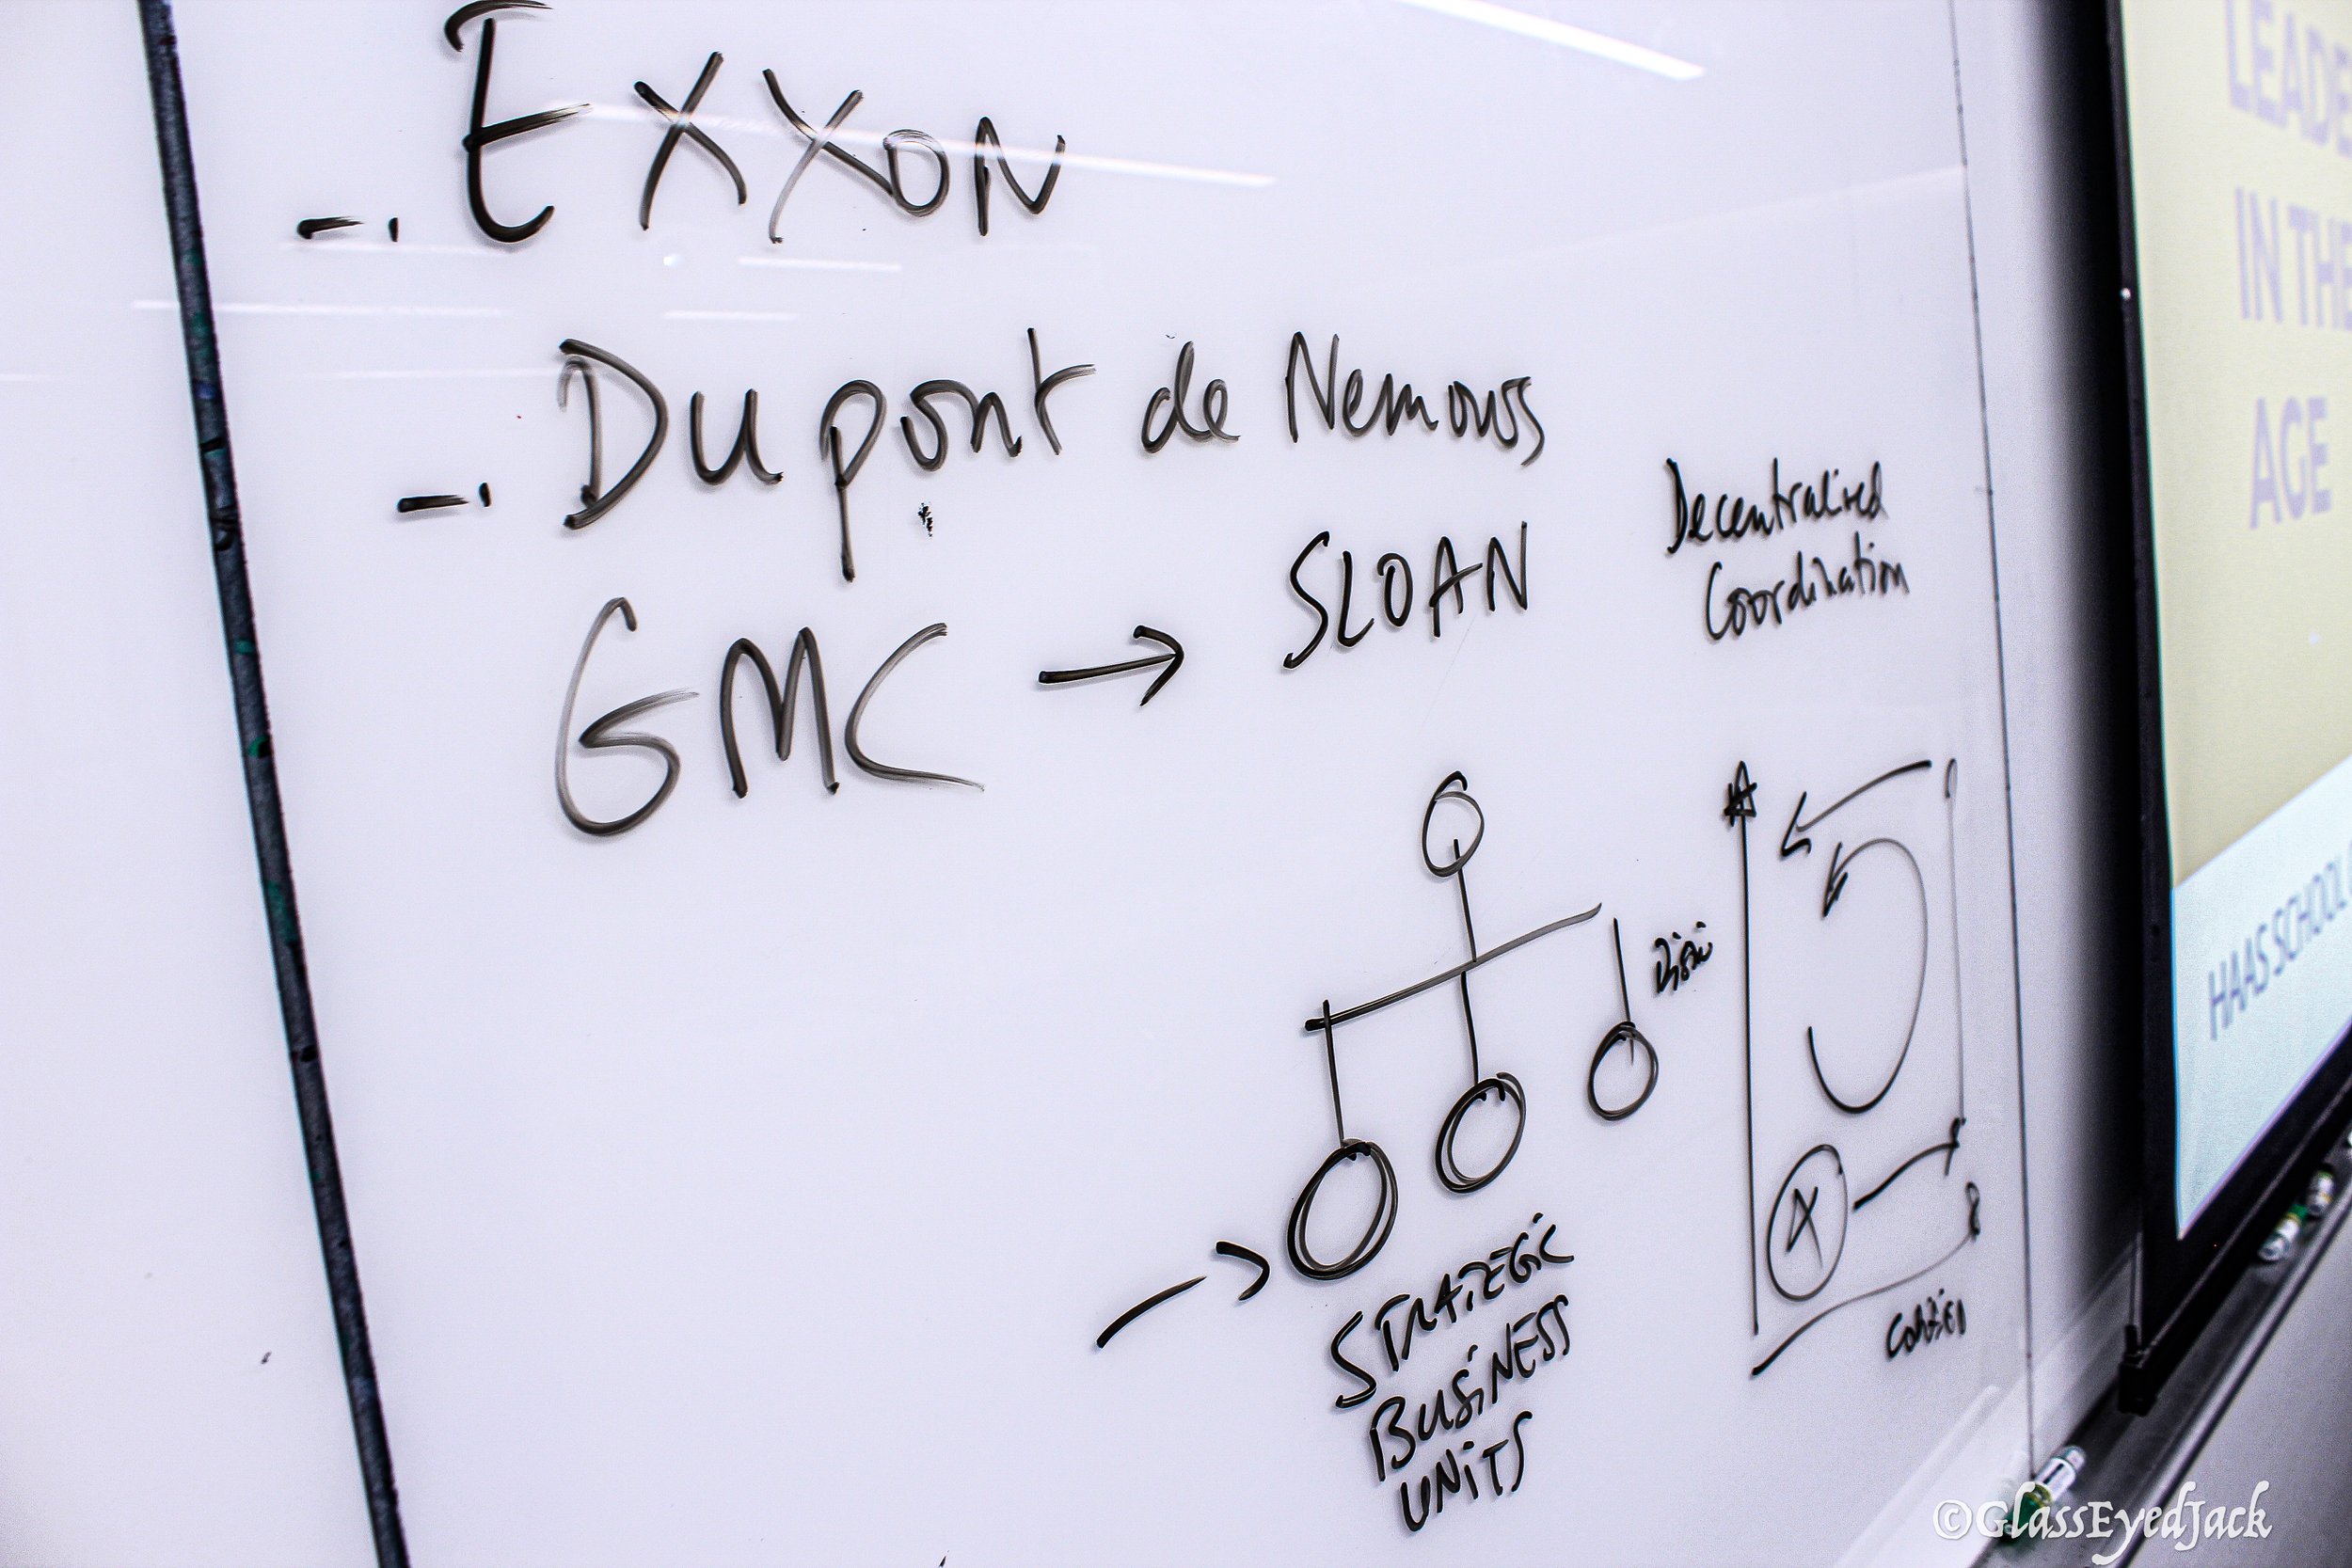 -. EXXON
-. Dupont de Nemours
GMC → SLOAN
Decentralised
Coordination
STRATEGIC
BUSINESS
UNITS
A
LEADE
IN THE
AGE
HAAS SCHOOL
©GlassEyedJack